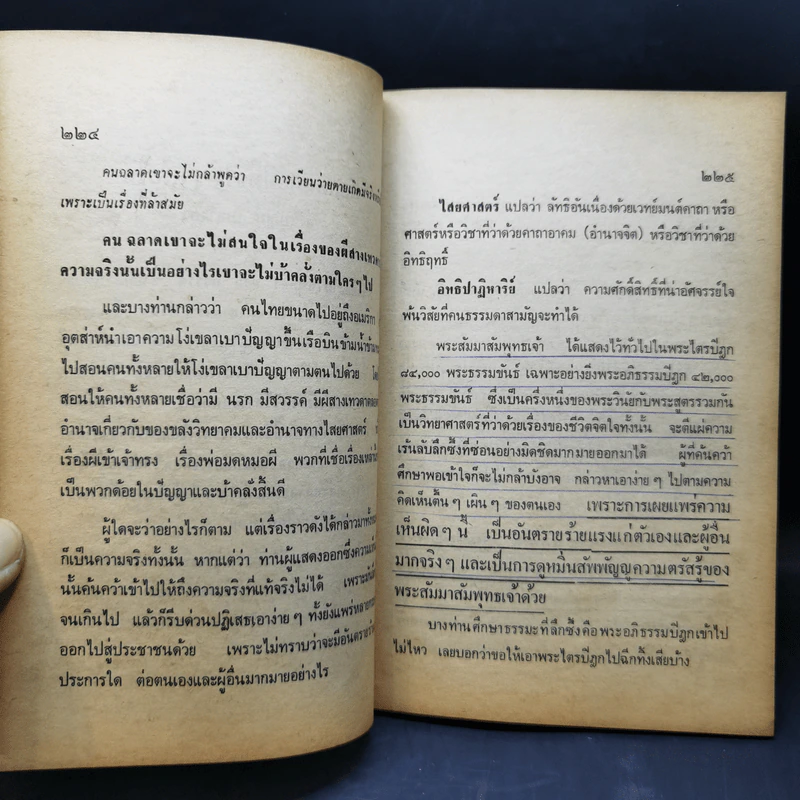 ๒๒๔
คนฉลาดเขาจะไม่กล้าพูดว่า การเวียนว่ายตายเกิดมีจริง
เพราะเป็นเรื่องที่ล้าสมัย
คนฉลาดเขาจะไม่สนใจในเรื่องของผีสางเทวดา
ความจริงนั้นเป็นอย่างไรเขาจะไม่บ้าคลั่งตามใครๆ ไป
และบางท่านกล่าวว่า คนไทยขนาดไปอยู่ถึงอเมริกา
อุตส่าห์นำเอาความโง่เขลาเบาปัญญาขึ้นเรือบินข้ามน้ำ
ไปสอนคนทั้งหลายให้โง่เขลาเบาปัญญาตามตนไปด้วย
สอนให้คนทั้งหลายเชื่อว่ามี นรก มีสวรรค์ มีผีสางเทวดา
อำนาจเกี่ยวกับของขลังวิทยาคมและอำนาจทางไสยศาสตร์
เรื่องผีเข้าเจ้าทรง เรื่องพ่อมดหมอผี พวกที่เชื่อเรื่อง
เป็นพวกด้อยในปัญญาและบ้าคลั่งสิ้นดี
ผู้ใดจะว่าอย่างไรก็ตาม แต่เรื่องราวดังได้กล่าวมา
ก็เป็นความจริงทั้งนั้น หากแต่ว่า ท่านผู้แสดงออกซึ่งความ
นั้นค้นคว้าเข้าไปให้ถึงความจริงที่แท้จริงไม่ได้ เพราะ
จนเกินไป แล้วก็รีบด่วนปฏิเสธเอาง่ายๆ ทั้งยังแพร่หลาย
ออกไปสู่ประชาชนด้วย เพราะไม่ทราบว่าจะมีอันตราย
ประการใด ต่อตนเองและผู้อื่นมากมายอย่างไร
๒๒๕
ไสยศาสตร์ แปลว่า ลัทธิอันเนื่องด้วยเวทย์มนต์คาถา หรือ
ศาสตร์หรือวิชาที่ว่าด้วยคาถาอาคม (อำนาจจิต) หรือวิชาที่ว่าด้วย
อิทธิฤทธิ์
อิทธิปาฏิหาริย์ แปลว่า ความศักดิ์สิทธิ์ที่น่าอัศจรรย์ใจ
พ้นวิสัยที่คนธรรมดาสามัญจะทำได้
พระสัมมาสัมพุทธเจ้า ได้แสดงไว้ทั่วไปในพระไตรปิฎก
๘๔,๐๐๐ พระธรรมขันธ์ เฉพาะอย่างยิ่งพระอภิธรรมปิฎก ๔๒,๐๐๐
พระธรรมขันธ์ ซึ่งเป็นครึ่งหนึ่งของพระวินัยกับพระสูตรรวมกัน
เป็นวิทยาศาสตร์ที่ว่าด้วยเรื่องของชีวิตจิตใจทั้งนั้น จะตีแผ่ความ
เร้นลับลึกซึ้งที่ซ่อนอย่างมิดชิดมากมายออกมาได้ ผู้ที่ค้นคว้า
ศึกษาพอเข้าใจก็จะไม่กล้าบังอาจ กล่าวหาเอาง่ายๆ ไปตามความ
คิดเห็นตื้นๆ เผินๆ ของตนเอง เพราะการเผยแพร่ความ
เห็นผิดๆ นี้ เป็นอันตรายร้ายแรงแก่ตัวเองและผู้อื่น
มากจริงๆ และเป็นการดูหมิ่นสัพพัญญูความตรัสรู้ของ
พระสัมมาสัมพุทธเจ้าด้วย
บางท่านศึกษาธรรมะที่ลึกซึ้งคือพระอภิธรรมปิฎกเข้าไป
ไม่ไหว เลยบอกว่าขอให้เอาพระไตรปิฎกไปฉีกทิ้งเสียบ้าง